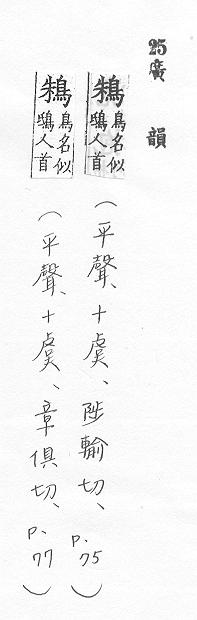 25廣韻
鴸鳥名似鴟人首(平聲、十虞、陟輸切、p.75)
鴸鳥名似鴟人首(平聲、十虞、章俱切、p.77)